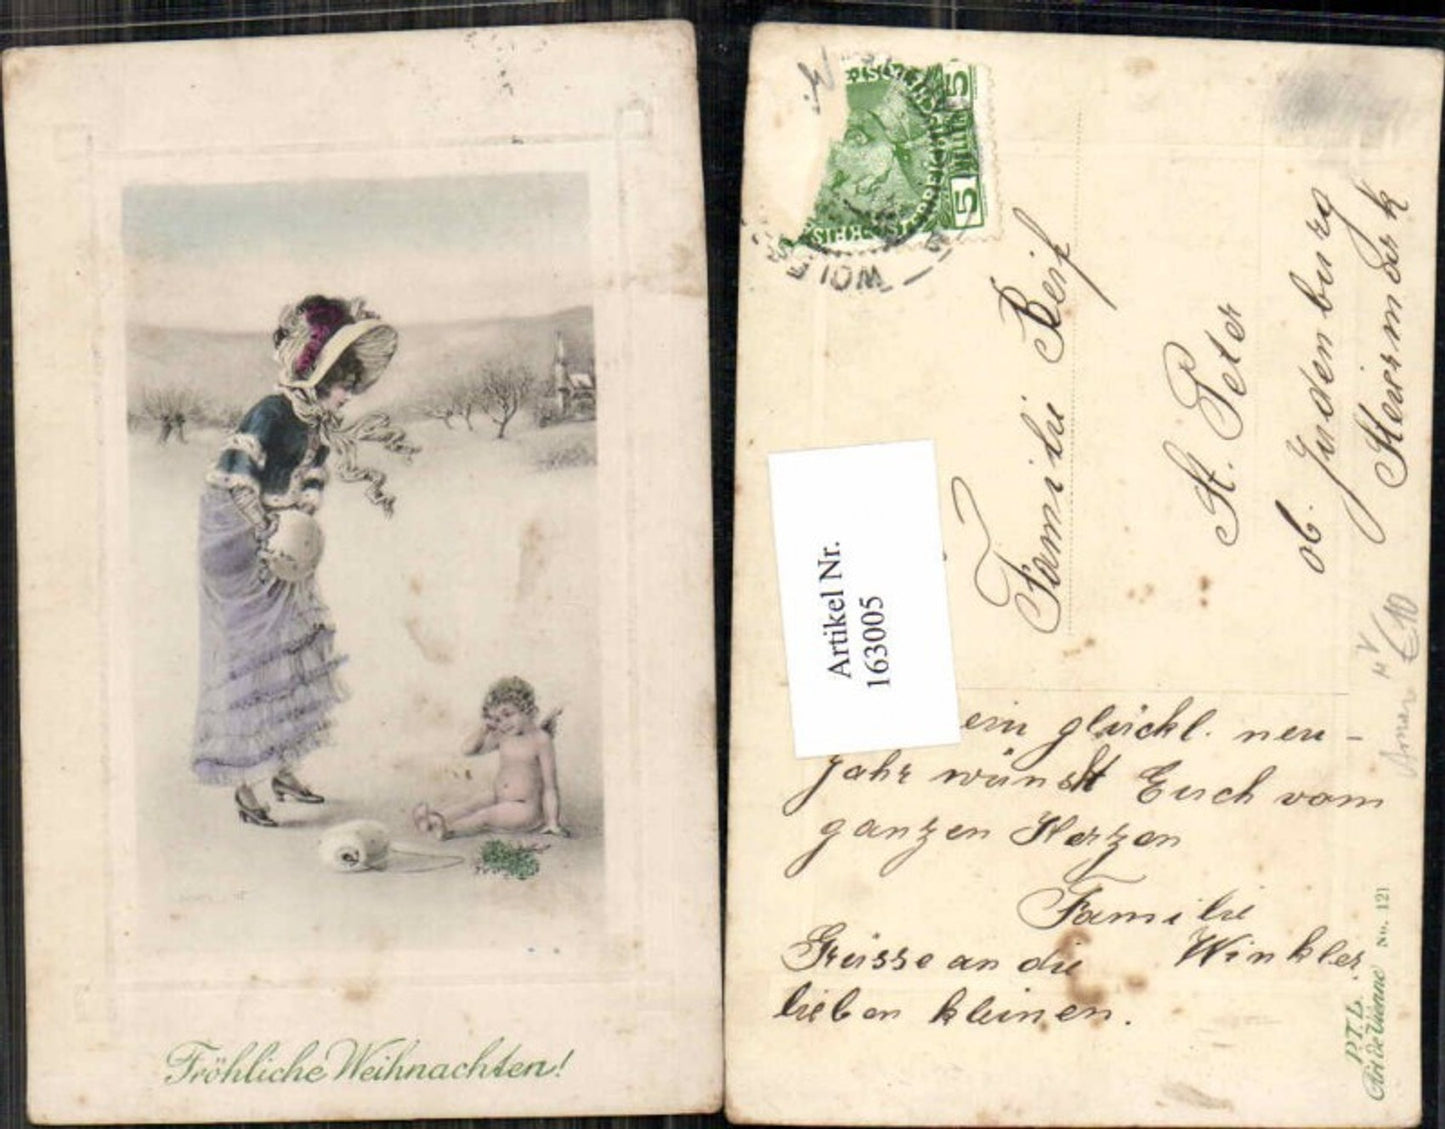 Fröhliche Weihnachten!
5
5
Familie Reif
St. Peter
ob. Judenburg
Steiermark
Artikel Nr.
163005
€ 10
ein glückl. neu-
jahr wünscht Euch vom
ganzen Herzen
Familie
Winkler.
Grüsse an die
lieben kleinen.
P.T.L.
Art de Vienne No. 121